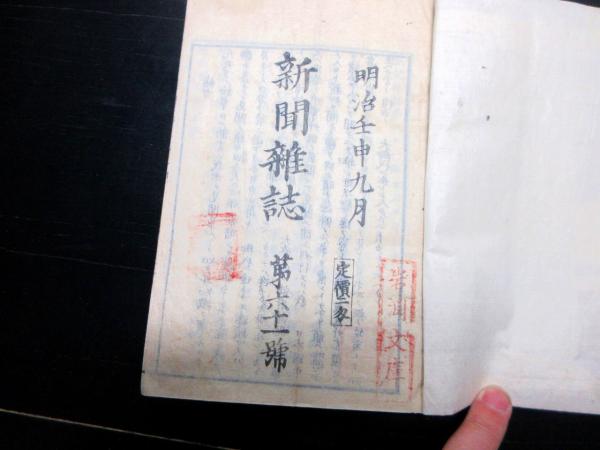 明治壬申九月
新聞雜誌 第六十一號
定價二匁
文庫